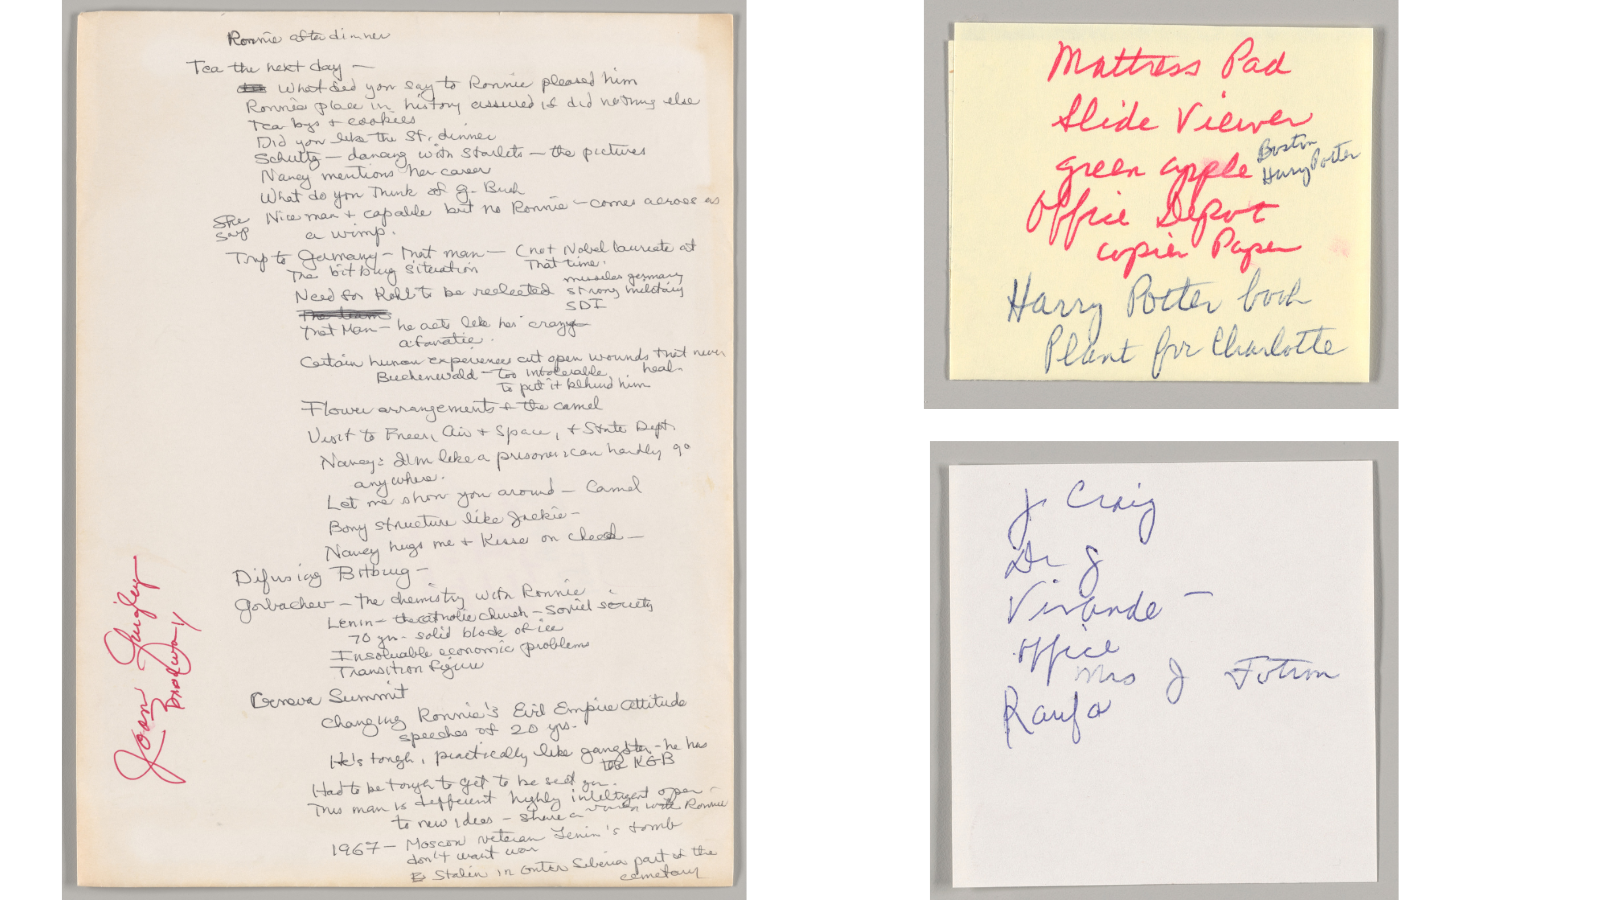 Ronnie after dinner
Tea the next day —
What did you say to Ronnie pleased him
Ronnie place in history assured if did nothing else
Tea bgs + cookies
Did you like the St. dinner
Schultz — dancing with Starlets — the pictures
Nancy mentions her career
What do you think of G. Bush
She says
Nice man + capable but no Ronnie — comes across as
a wimp.
Trip to Germany — that man — (not Nobel laureate at
that time.
The bitburg situation
Need for Kohl to be reelected
missiles germany
strong military
SDI
The team
That Man — he acts like he's crazy
a fanatic.
Certain human experiences cut open wounds that never
heal.
Buchenwald — too intolerable
to put it behind him
Flower arrangements + the camel
Visit to Freer, Air + Space, + State Dept.
Nancy: I'm like a prisoner: can hardly go
anywhere.
Let me show you around — Camel
Bony structure like Jackie —
Nancy hugs me + Kisse on cheek —
Difusing Bitburg —
Gorbachev — the chemistry with Ronnie
Lenin — the catholic church — Soviet society
70 yrs. solid block of ice
Insoluable economic problems
Transition figure
Geneva Summit
Changing Ronnie's Evil Empire attitude
speeches of 20 yrs.
He's tough, practically like gangster — he has
the KGB
Had to be tough to get to be
This man is different highly intelligent open —
to new ideas — share a vision with Ronnie
1967 — Moscow veteran Lenin's tomb
don't want war
Stalin in outer Siberia part of the
cemetary
Joan Quigley
Mattress Pad
Slide Viewer
green apple
Boston
Harry Potter
Office Depot
copier Paper
Harry Potter book
Plant for Charlotte
J Craig
Dr J
office
Mrs J